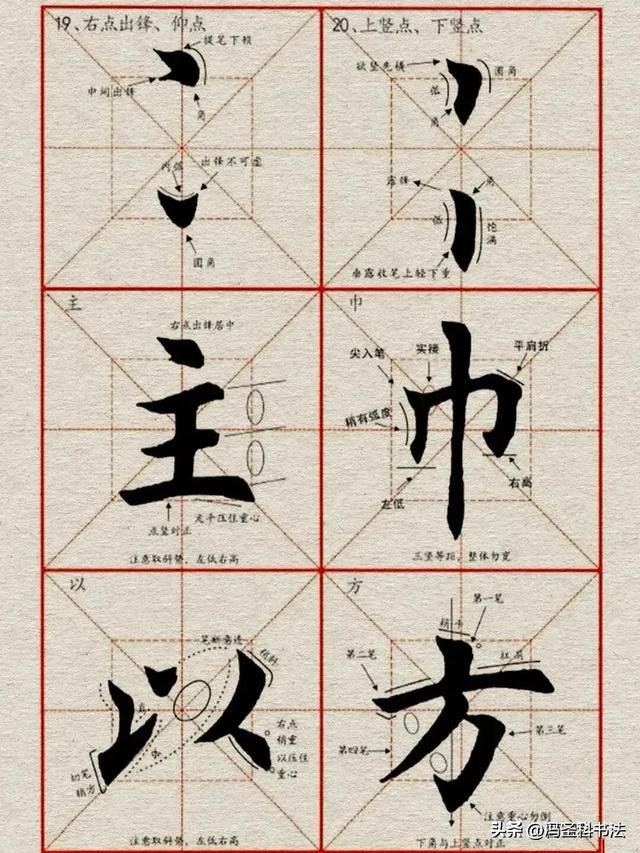 19、右点出锋、仰点
提笔下顿
中间出锋
角
内弧
出锋不可虚
圆角
20、上竖点、下竖点
欲竖先横
圆角
弧
角
露锋
角
弧
饱满
垂露收笔上轻下重
主
右点出锋居中
点竖对正
左平压住重心
注意取斜势，左低右高
主
巾
尖入笔
实接
平肩折
稍有弧度
左低
右高
三竖等距，整体勿宽
巾
以
笔断意连
稍斜
直
弧
切笔稍方
右点稍重以压住重心
注意取斜势，左低右高
以
方
第一笔
稍平
第二笔
扛肩
第三笔
第四笔
注意重心勿倒
下角与上竖点对正
方
头条@冯圣科书法